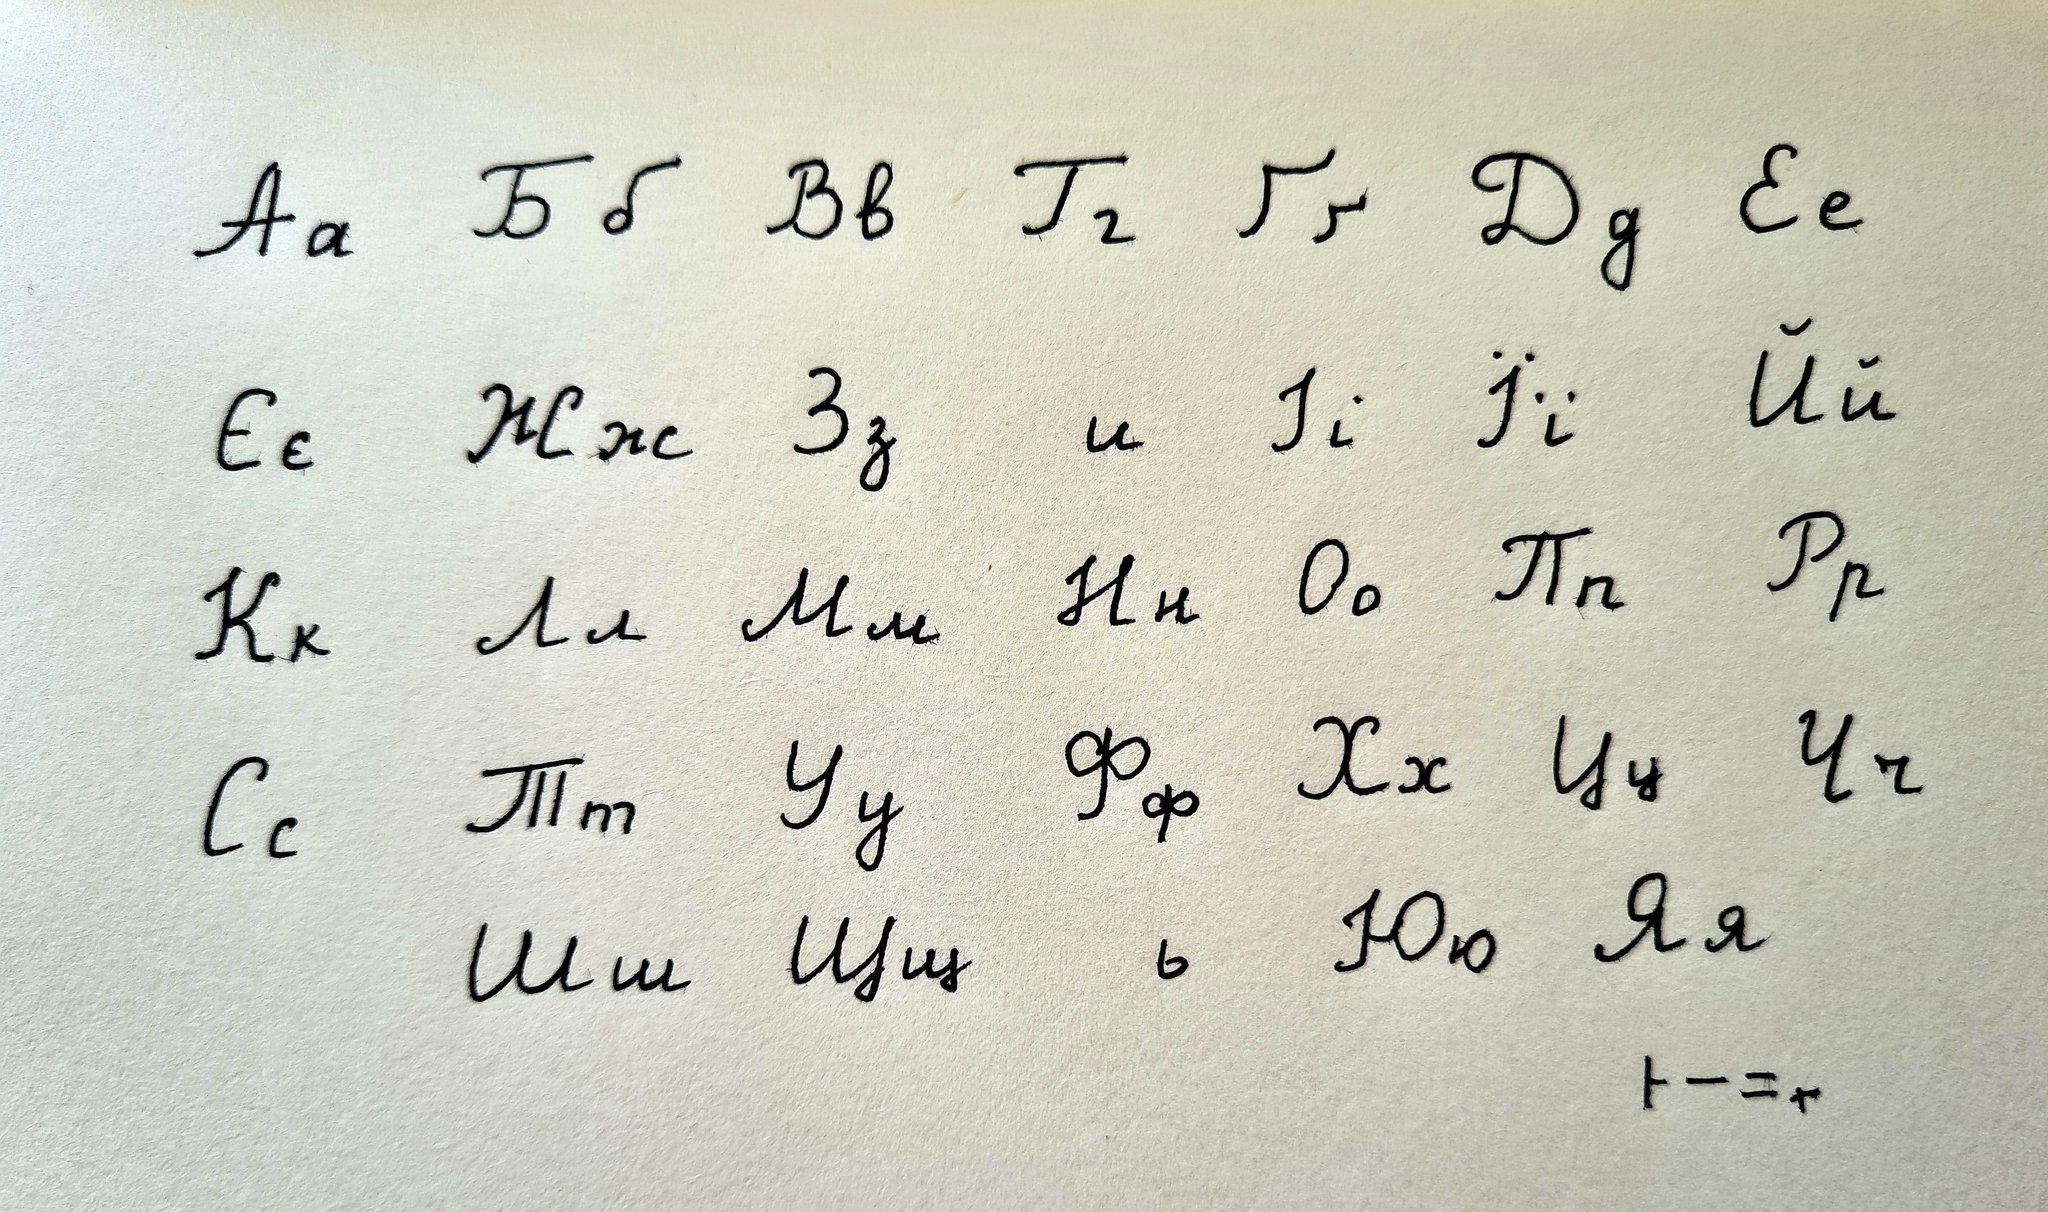 Аа Бб Вв Гг Ґґ Дд Ее
Єє Жж Зз и Іі Її Йй
Кк Лл Мм Нн Оо Пп Рр
Сс Тт Уу Фф Хх Цц Чч
Шш Щщ ь Юю Яя